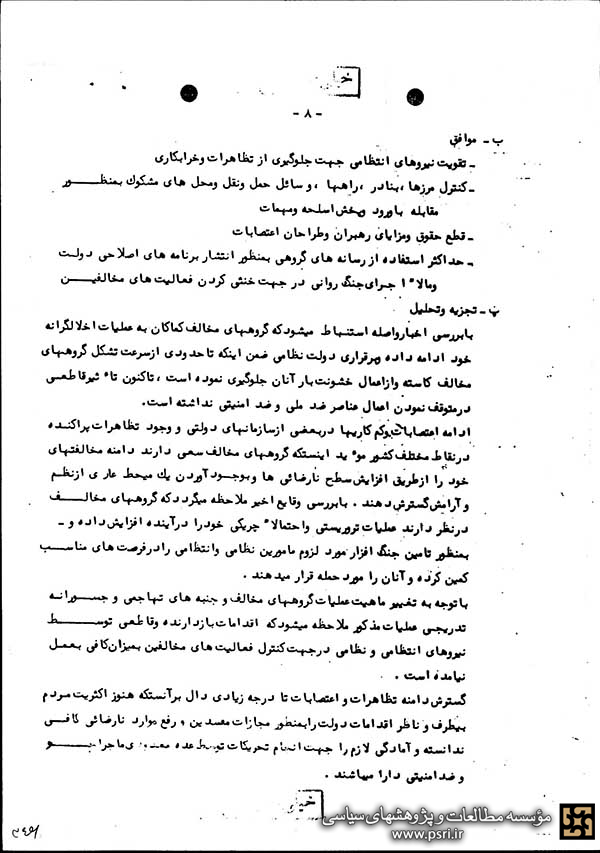 - ۸ -
ب - موافق
- تقویت نیروهای انتظامی جهت جلوگیری از تظاهرات وخرابکاری
- کنترل مرزها ، بنادر ، راهها ، وسائل حمل ونقل ومحل های مشکوك بمنظور
مقابله باورود وپخش اسلحه ومهمات
- قطع حقوق ومزایای رهبران وطراحان اعتصابات
- حداکثر استفاده از رسانه های گروهی بمنظور انتشار برنامه های اصلاحی دولت
ومالا" اجرای جنگ روانی در جهت خنثی کردن فعالیت های مخالفین
پ - تجزیه وتحلیل
بابررسی اخبار واصله استنباط میشود که گروههای مخالف کماکان به عملیات اخلالگرانه
خود ادامه داده وبرقراری دولت نظامی ضمن اینکه تاحدودی ازسرعت تشکل گروههای
مخالف کاسته وازاعمال خشونت بار آنان جلوگیری نموده است ، تاکنون تاء ثیرقاطعی
درمتوقف نمودن اعمال عناصر ضد ملی و ضد امنیتی نداشته است.
ادامه اعتصابات وکم کاریها دربعضی ازسازمانهای دولتی و وجود تظاهرات پراکنده
درنقاط مختلف کشور موء ید اینستکه گروههای مخالف سعی دارند دامنه مخالفتهای
خود را ازطریق افزایش سطح نارضائی ها وبوجود آوردن یك میحط عاری ازنظم
و آرامش گسترش دهند . بابررسی وقایع اخیر ملاحظه میگردد که گروههای مخالف
درنظر دارند عملیات تروریستی واحتمالا" چریکی خودرا درآینده افزایش داده و -
بمنظور تامین جنگ افزار مورد لزوم مامورین نظامی وانتظامی را درفرصت های مناسب
کمین کرده و آنان را مورد حمله قرار میدهند .
باتوجه به تغییر ماهیت عملیات گروههای مخالف و جنبه های تهاجمی و جسورانه
تدریجی عملیات مذکور ملاحظه میشودکه اقدامات بازدارنده وقاطعی توسط
نیروهای انتظامی و نظامی درجهت کنترل فعالیت های مخالفین بمیزان کافی بعمل
نیامده است .
گسترش دامنه تظاهرات و اعتصابات تا درجه زیادی دال برآنستکه هنوز اکثریت مردم
بیطرف و ناظر اقدامات دولت رابمنظور مجازات مفسدین و رفع موارد نارضائی کافی
ندانسته و آمادگی لازم را جهت انجام تحریکات توسط عده معدودی ماجراجو
و ضد امنیتی دارا میباشند .
مؤسسه مطالعات و پژوهشهای سیاسی
www.psri.ir